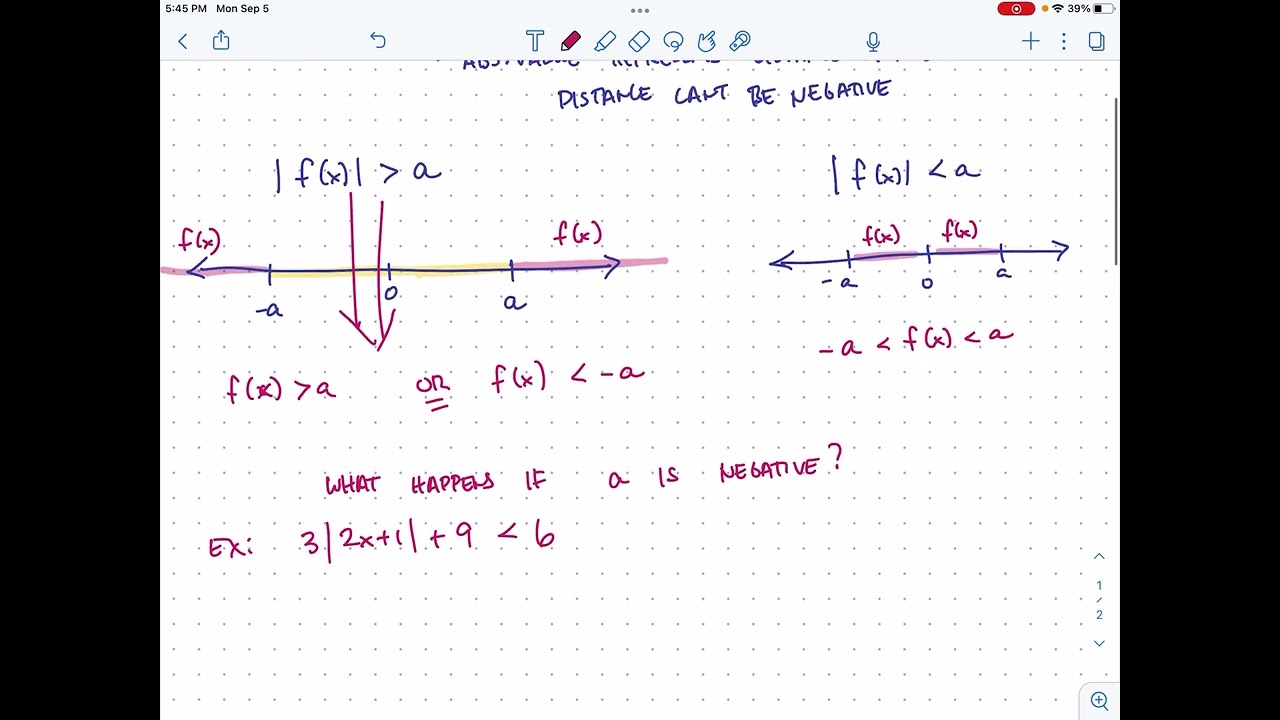 5:45 PM Mon Sep 5
39%
DISTANCE CANT BE NEGATIVE
|f(x)| > a
|f(x)| < a
f(x)
f(x)
f(x)
f(x)
-a
0
a
-a
0
a
-a < f(x) < a
f(x) > a OR f(x) < -a
WHAT HAPPENS IF a IS NEGATIVE?
EX: 3|2x+1| + 9 < 6
1
/
2